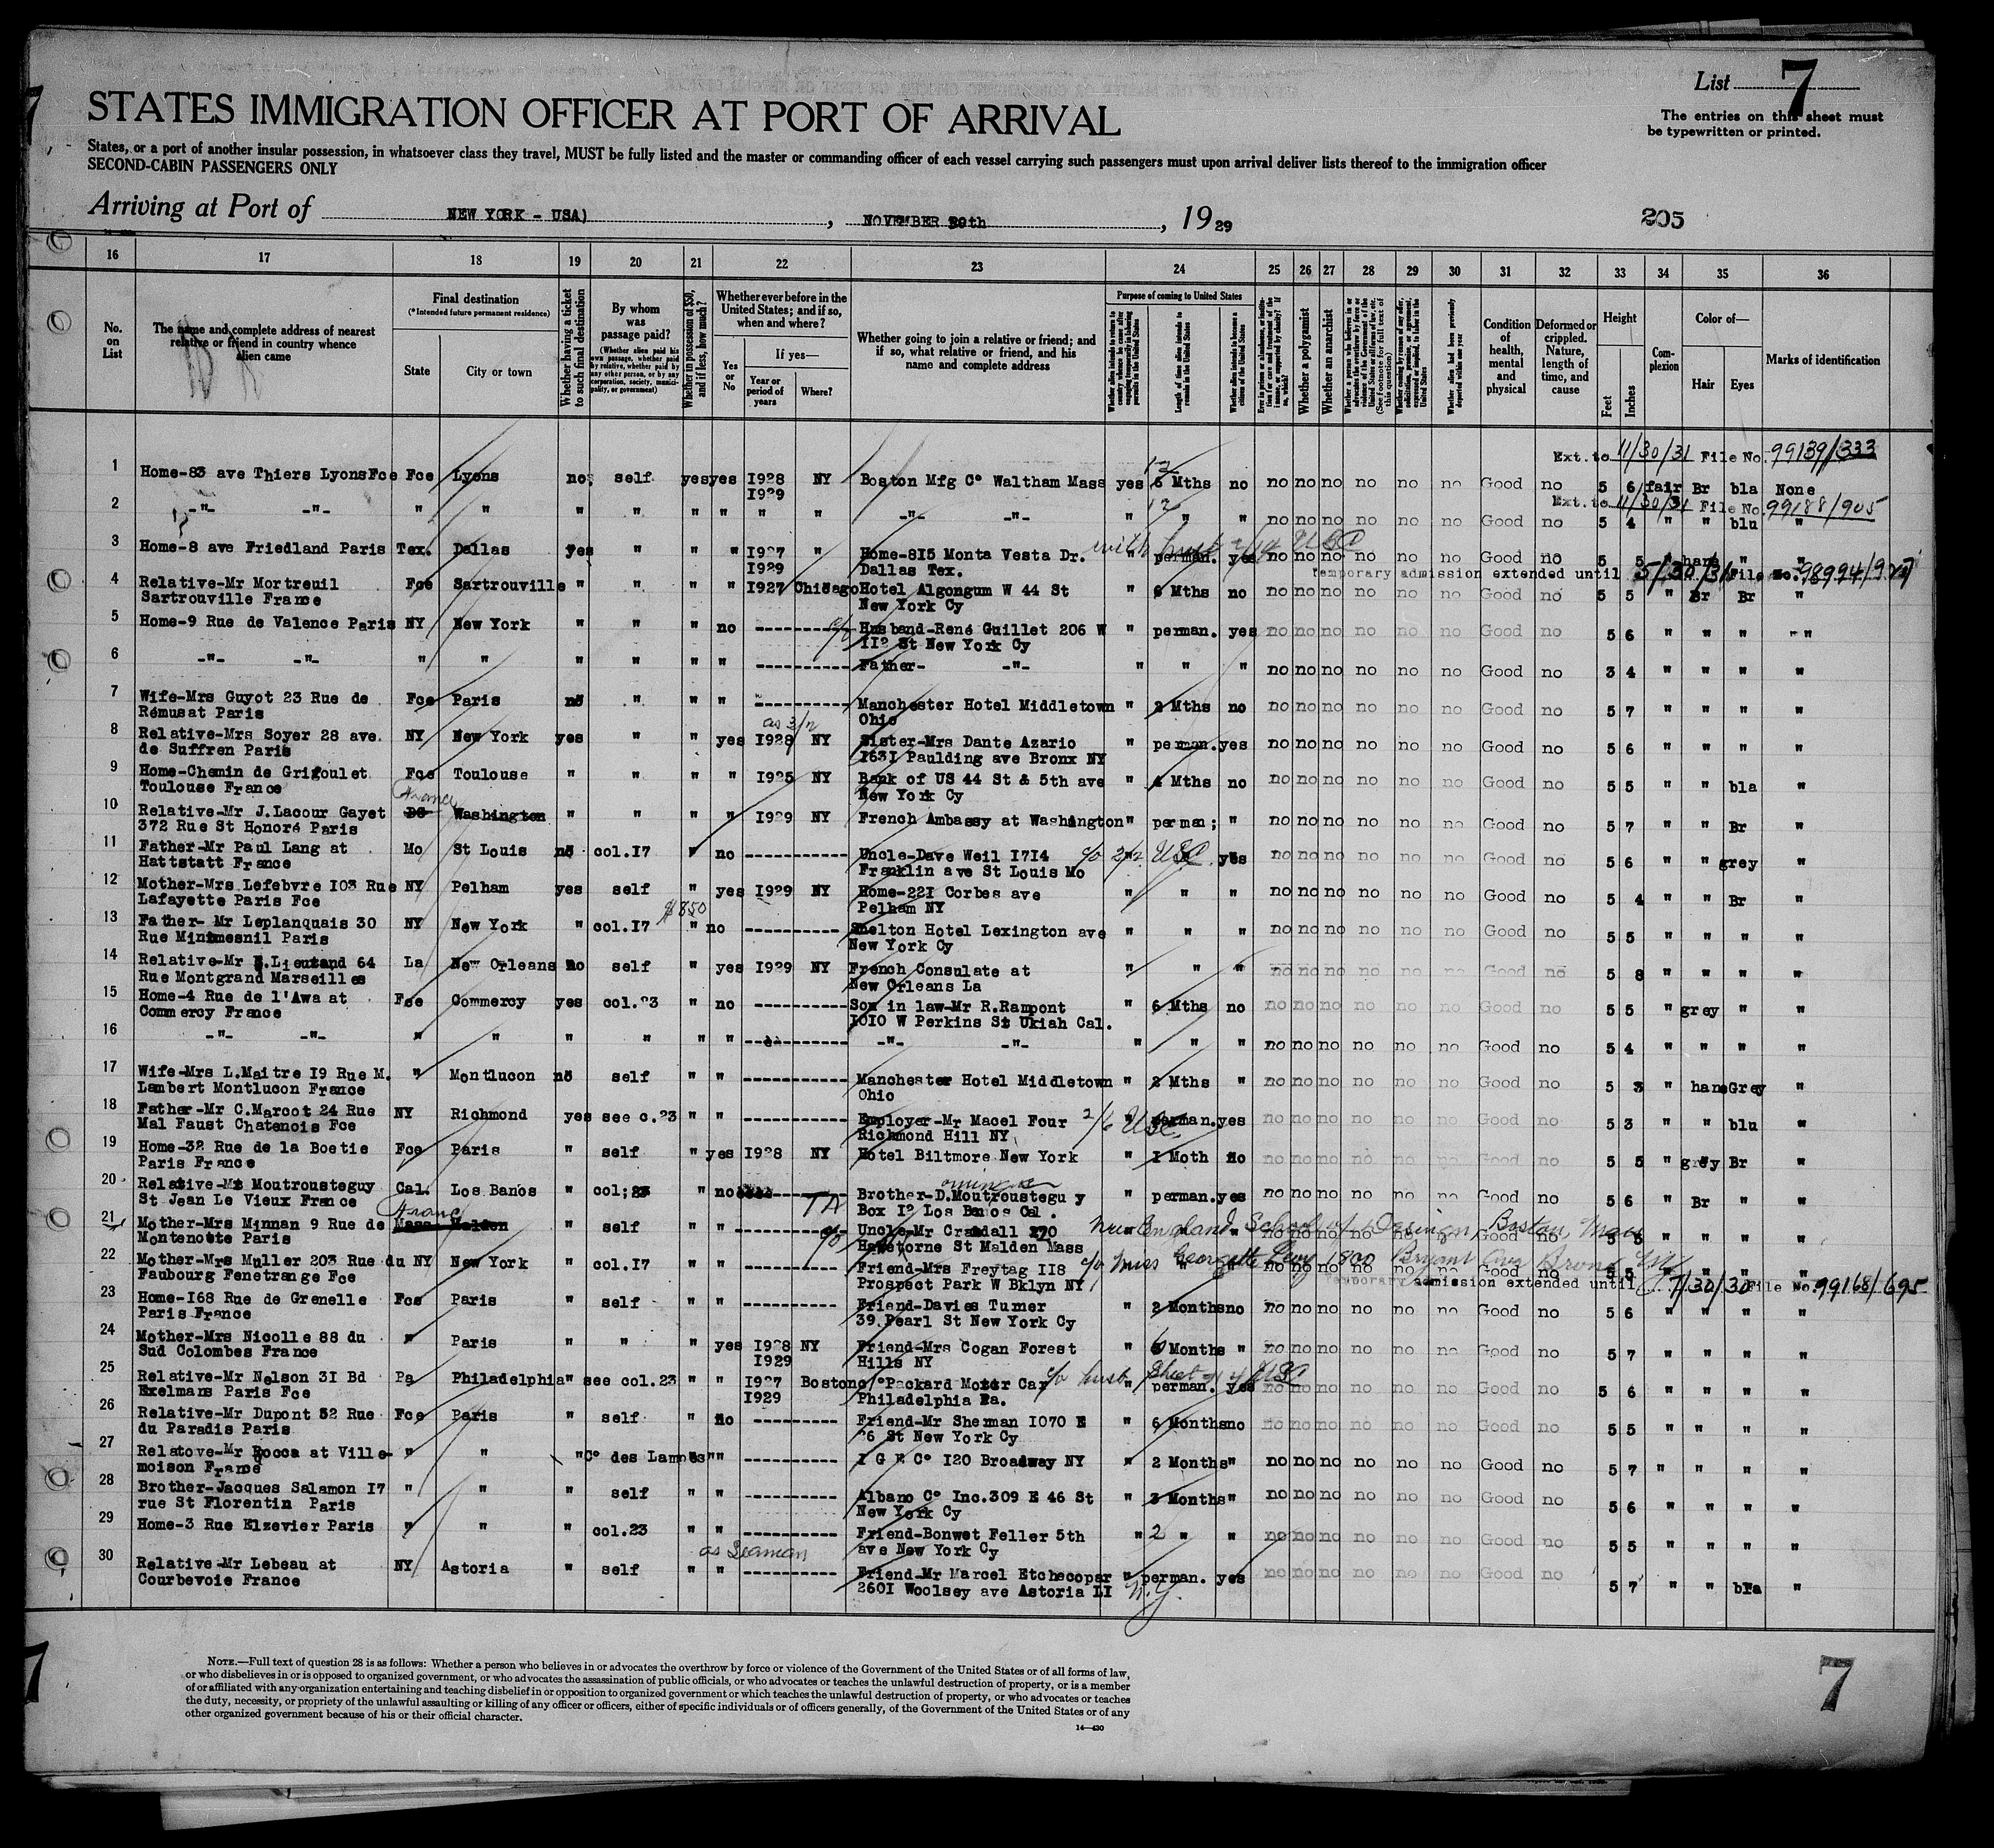 List 7
STATES IMMIGRATION OFFICER AT PORT OF ARRIVAL
The entries on this sheet must
be typewritten or printed.
States, or a port of another insular possession, in whatsoever class they travel, MUST be fully listed and the master or commanding officer of each vessel carrying such passengers must upon arrival deliver lists thereof to the immigration officer
SECOND-CABIN PASSENGERS ONLY
Arriving at Port of NEW YORK - USA) , NOVEMBER 29th , 19 29
205
16 17 18 19 20 21 22 23 24 25 26 27 28 29 30 31 32 33 34 35 36
No. on List
The name and complete address of nearest relative or friend in country whence alien came
Final destination
(*Intended future permanent residence)
State City or town
Whether having a ticket to such final destination
By whom was passage paid?
(Whether alien paid his own passage, whether paid by relative, whether paid by any other person, or by any corporation, society, municipality, or government)
Whether in possession of $50, and if less, how much?
Whether ever before in the United States; and if so, when and where?
Yes or No
If yes—
Year or period of years Where?
Whether going to join a relative or friend; and if so, what relative or friend, and his name and complete address
Purpose of coming to United States
Length of time alien intends to remain in the United States
Whether alien intends to become a citizen of the United States
Whether a polygamist
Whether an anarchist
Condition of health, mental and physical
Deformed or crippled. Nature, length of time, and cause
Height
Feet Inches
Complexion
Color of—
Hair Eyes
Marks of identification
Ext. to 11/30/31 File No. 99139/333
1 Home-83 ave Thiers LyonsFce Fce Lyons no self yes yes I928 NY Boston Mfg Cº Waltham Mass yes 6 Mths no no no no no no no Good no 5 6 fair Br bla None
I929 12
Ext. to 11/30/31 File No. 99188/905
2 -"- -"- " " " " " " " " -"- -"- " " " no no no no no no Good no 5 4 " " blu "
3 Home-8 ave Friedland Paris Tex. Dallas yes " " " I927 " Home-8I5 Monta Vesta Dr. " perman. yes no no no no no no Good no 5 5 " " "
I929 Dallas Tex.
Temporary admission extended until 5/30/31 File No. 98994/927
4 Relative-Mr Mortreuil Fce Sartrouville " " " " I927 Chicago Hotel Algongum W 44 St " 6 Mths no no no no no no no Good no 5 5 " Br Br "
Sartrouville France New York Cy
5 Home-9 Rue de Valence Paris NY New York " " " no ---------- Husband-René Guillet 206 W " perman. yes no no no no no no Good no 5 6 " " " "
II2 St New York Cy
6 -"- -"- " " " " " " ---------- Father- -"- " " " no no no no no no Good no 3 4 " " " "
7 Wife-Mrs Guyot 23 Rue de Fce Paris no " " " ---------- Manchester Hotel Middletown " 2 Mths no no no no no no no Good no 5 7 " " " "
Rémusat Paris Ohio
8 Relative-Mrs Soyer 28 ave. NY New York yes " " yes I928 NY Sister-Mrs Dante Azario " perman. yes no no no no no no Good no 5 6 " " " "
de Suffren Paris I63I Paulding ave Bronx NY
9 Home-Chemin de Grigoulet Fce Toulouse " " " " I925 NY Bank of US 44 St & 5th ave " 4 Mths no no no no no no no Good no 5 5 " " bla "
Toulouse France New York Cy
France
10 Relative-Mr J.Lacour Gayet DC Washington " " " " I929 NY French Ambassy at Washington " perman; " no no no no no no Good no 5 7 " " Br "
372 Rue St Honoré Paris
11 Father-Mr Paul Lang at Mo St Louis no col.I7 " no ---------- Uncle-Dave Weil I7I4 yes no no no no no no Good no 5 6 " " grey "
Hattstatt France Franklin ave St Louis Mo
12 Mother-Mrs Lefebvre I03 Rue NY Pelham yes self " yes I929 NY Home-22I Corbes ave " " " no no no no no no Good no 5 4 " " Br "
Lafayette Paris Fce Pelham NY
$850
13 Father- Mr Leplanquais 30 NY New York " col.I7 " no ---------- Shelton Hotel Lexington ave " " " no no no no no no Good no 5 5 " " " "
Rue Minimesnil Paris New York Cy
14 Relative-Mr E.Lieutand 64 La New Orleans no self " yes I929 NY French Consulate at " " " no no no no no no Good no 5 8 " " " "
Rue Montgrand Marseilles New Orleans La
15 Home-4 Rue de l'Awa at Fce Commercy yes col.23 " no ---------- Son in law-Mr R.Rampont " 6 Mths no no no no no no no Good no 5 5 " grey " "
Commercy France I0I0 W Perkins St Ukiah Cal.
16 -"- -"- " " " " " " ---------- -"- -"- " " " no no no no no no Good no 5 4 " " " "
17 Wife-Mrs L.Maitre I9 Rue M. " Montlucon no self " " ---------- Manchester Hotel Middletown " 2 Mths " no no no no no no Good no 5 3 " hans Grey "
Lambert Montlucon France Ohio
18 Father-Mr C.Marcot 24 Rue NY Richmond yes see c.23 " " ---------- Employer-Mr Macel Four " perman. yes no no no no no no Good no 5 3 " " blu "
Mal Faust Chatenois Fce Richmond Hill NY
19 Home-32 Rue de la Boetie Fce Paris " self " yes I928 NY Hotel Biltmore New York " I Moth no no no no no no no Good no 5 5 " grey Br "
Paris France
20 Relative-Mr Moutrousteguy Cal. Los Banos " col;23 " no ---------- Brother-D.Moutrousteguy " perman. yes no no no no no no Good no 5 6 " Br " "
St Jean Le Vieux France Box I2 Los Banos Cal.
France
21 Mother-Mrs Minnan 9 Rue de Mass Malden " self " " ---------- Uncle-Mr Crandall 270 New England School of Design, Boston, Mass
Montenotte Paris Hawtorne St Malden Mass
22 Mother-Mrs Muller 203 Rue du NY New York " col.I7 " " ---------- Friend-Mrs Freytag II8 c/o Miss Georgette Levy 1800 Bryant Ave Bronx NY
Faubourg Fenetrange Fce Prospect Park W Bklyn NY
Temporary admission extended until 7/30/30 File No. 99168/695
23 Home-I68 Rue de Grenelle Fce Paris " self " " ---------- Friend-Davies Turner " 2 Months no no no no no no no Good no 5 6 " " " "
Paris France 39 Pearl St New York Cy
24 Mother-Mrs Nicolle 88 du " Paris " " " yes I928 NY Friend-Mrs Cogan Forest " 6 Months " no no no no no no Good no 5 7 " " " "
Sud Colombes France I929 Hills NY
25 Relative-Mr Nelson 3I Bd Pa Philadelphia " see col.23 " " I927 Boston c/º Packard Motor Car " perman. yes no no no no no no Good no 5 6 " " " "
Exelmans Paris Fce I929 Philadelphia Pa.
26 Relative-Mr Dupont 52 Rue Fce Paris " self " no ---------- Friend-Mr Sherman I070 E " 6 Months no no no no no no no Good no 5 5 " " " "
du Paradis Paris 26 St New York Cy
27 Relatove-Mr Rocca at Ville- " " " Cº des Lampes " " ---------- I G E Cº I20 Broadway NY " 2 Months " no no no no no no Good no 5 7 " " " "
moison France
28 Brother-Jacques Salamon I7 " " " self " " ---------- Albano Cº Inc.309 E 46 St " 3 Months " no no no no no no Good no 5 6 " " " "
rue St Florentin Paris New York Cy
29 Home-3 Rue Elzevier Paris " " " col.23 " " ---------- Friend-Bonwet Feller 5th " 2 " " no no no no no no Good no 5 5 " " " "
ave New York Cy
as Seaman
30 Relative-Mr Lebeau at NY Astoria " self " " ---------- Friend-Mr Marcel Etchecopar " perman. yes no no no no no no Good no 5 7 " " bla "
Courbevoie France 260I Woolsey ave Astoria LI N.Y.
NOTE.—Full text of question 28 is as follows: Whether a person who believes in or advocates the overthrow by force or violence of the Government of the United States or of all forms of law,
or who disbelieves in or is opposed to organized government, or who advocates the assassination of public officials, or who advocates or teaches the unlawful destruction of property, or is a member
of or affiliated with any organization entertaining and teaching disbelief in or opposition to organized government or which teaches the unlawful destruction of property, or who advocates or teaches
the duty, necessity, or propriety of the unlawful assaulting or killing of any officer or officers, either of specific individuals or of officers generally, of the Government of the United States or of any
other organized government because of his or their official character.
14—430
7